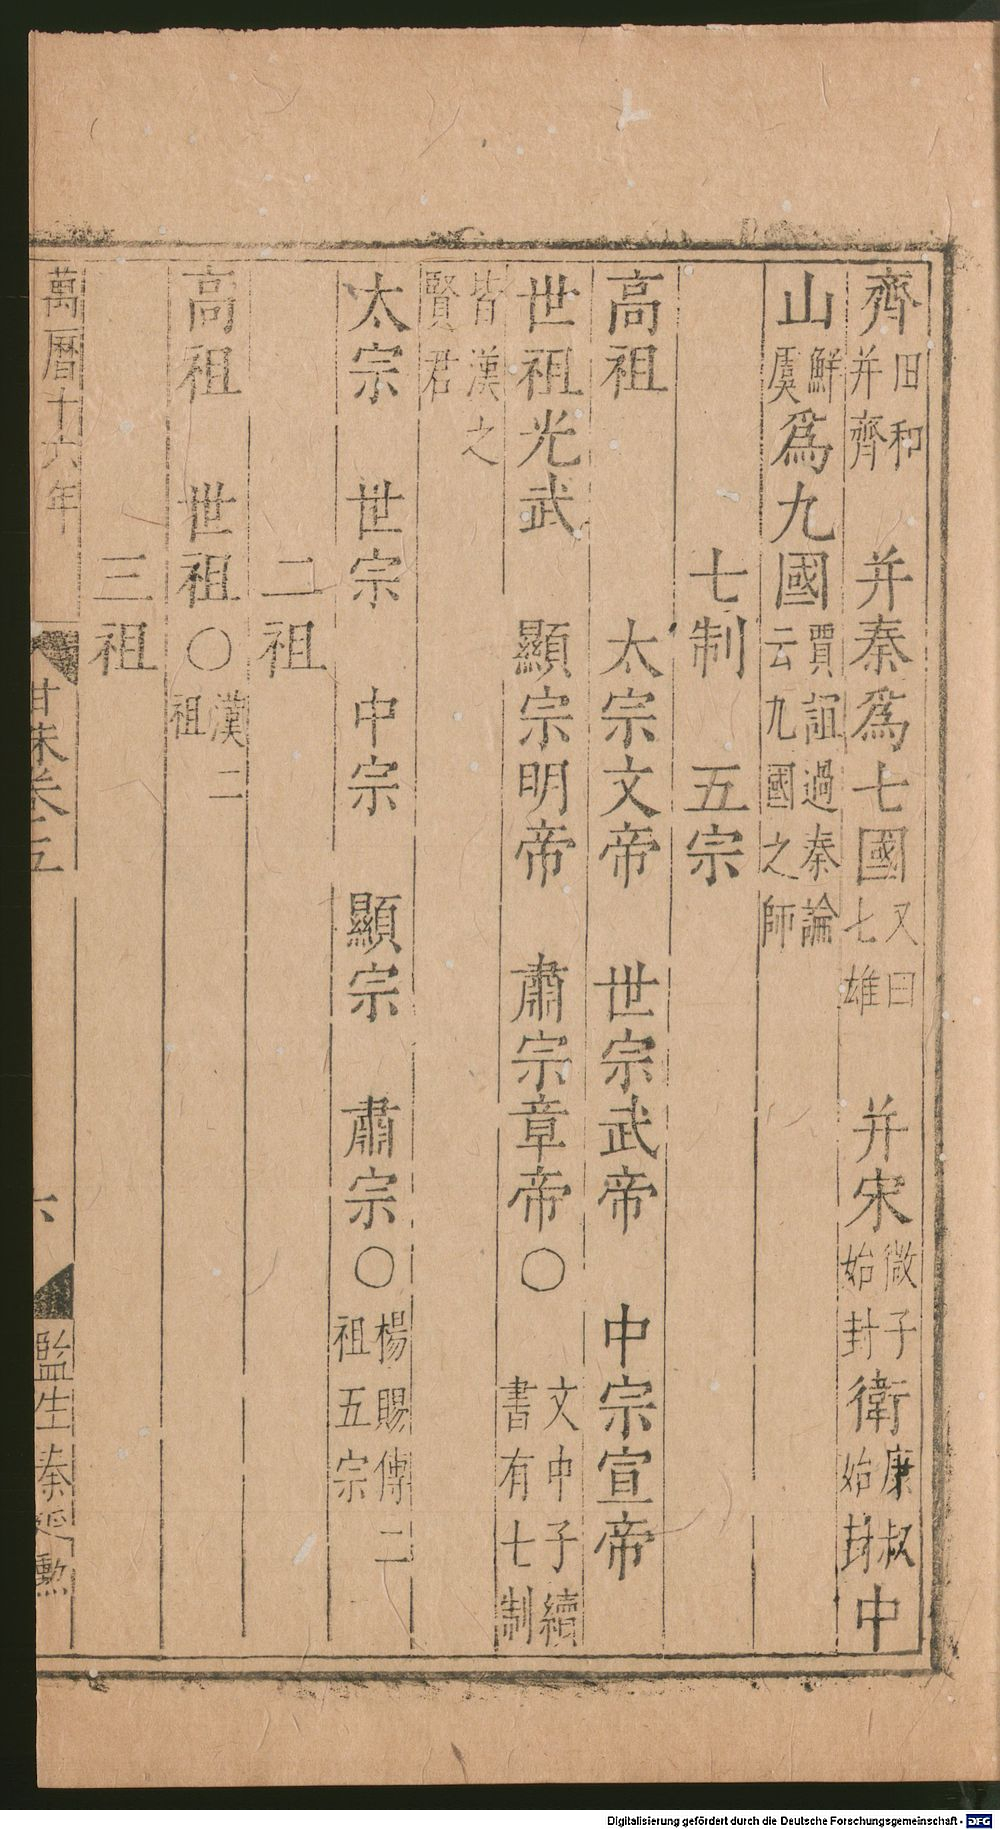 齊旧和并齊 并秦爲七國又曰七雄 并宋微子始封衛康叔始封中
山鮮虞爲九國賈誼過秦論云九國之師
七制 五宗
高祖 太宗文帝 世宗武帝 中宗宣帝
世祖光武 顯宗明帝 肅宗章帝〇 文中子續書有七制
皆漢之賢君
太宗 世宗 中宗 顯宗 肅宗〇楊賜傳二祖五宗
二祖
高祖 世祖〇漢二祖
三祖
萬曆十六年 卷五 六 監生秦延勲
Digitalisierung gefördert durch die Deutsche Forschungsgemeinschaft - DFG